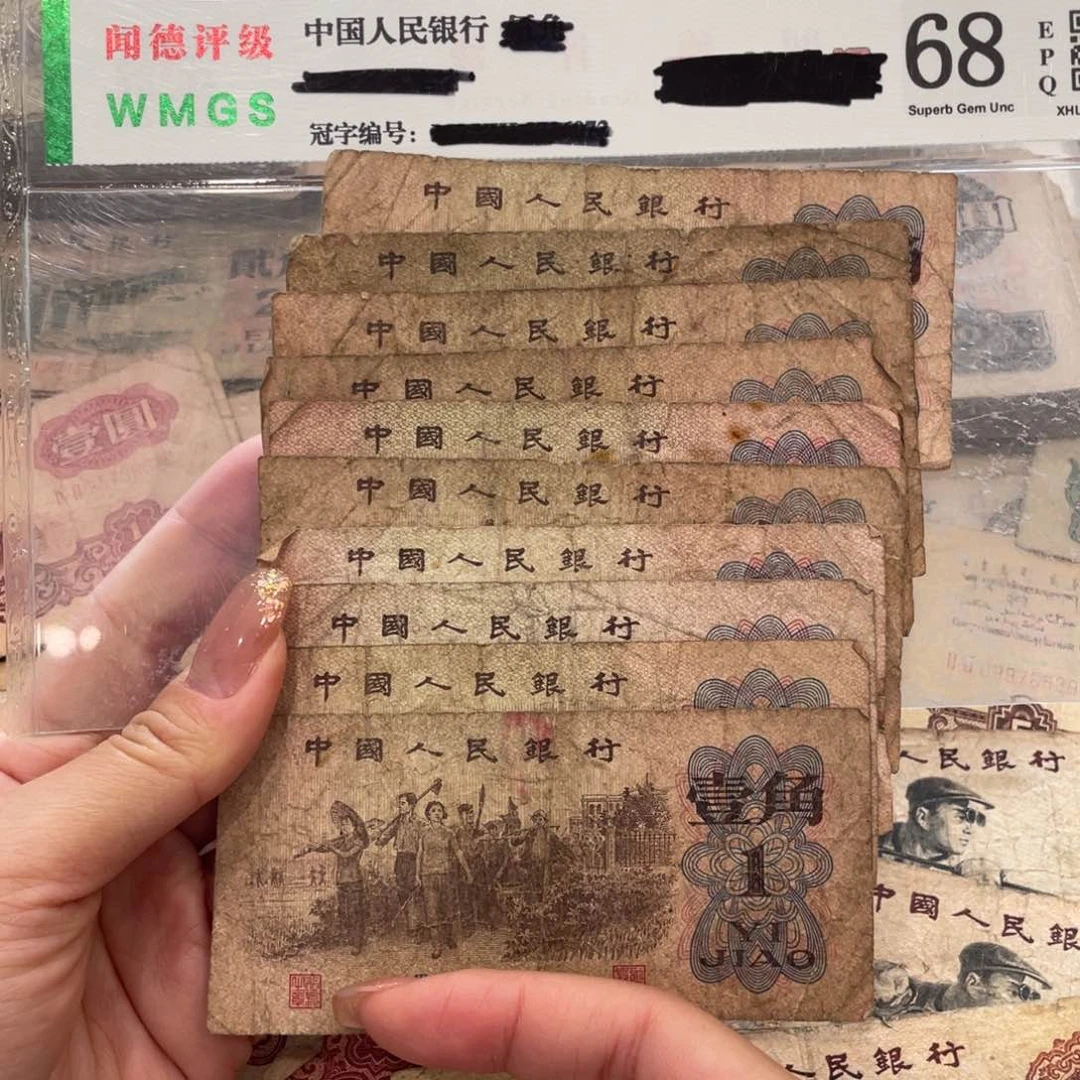 闻德评级
WMGS
中国人民银行
冠字编号:
68
Superb Gem Unc
EPQ
XHL
中國人民銀行
中國人民銀行
中國人民銀行
中國人民銀行
中國人民銀行
中國人民銀行
中國人民銀行
中國人民銀行
中國人民銀行
中國人民銀行
壹角
1
YI
JIAO
壹圓
人民銀行
中國人民銀
人民銀行